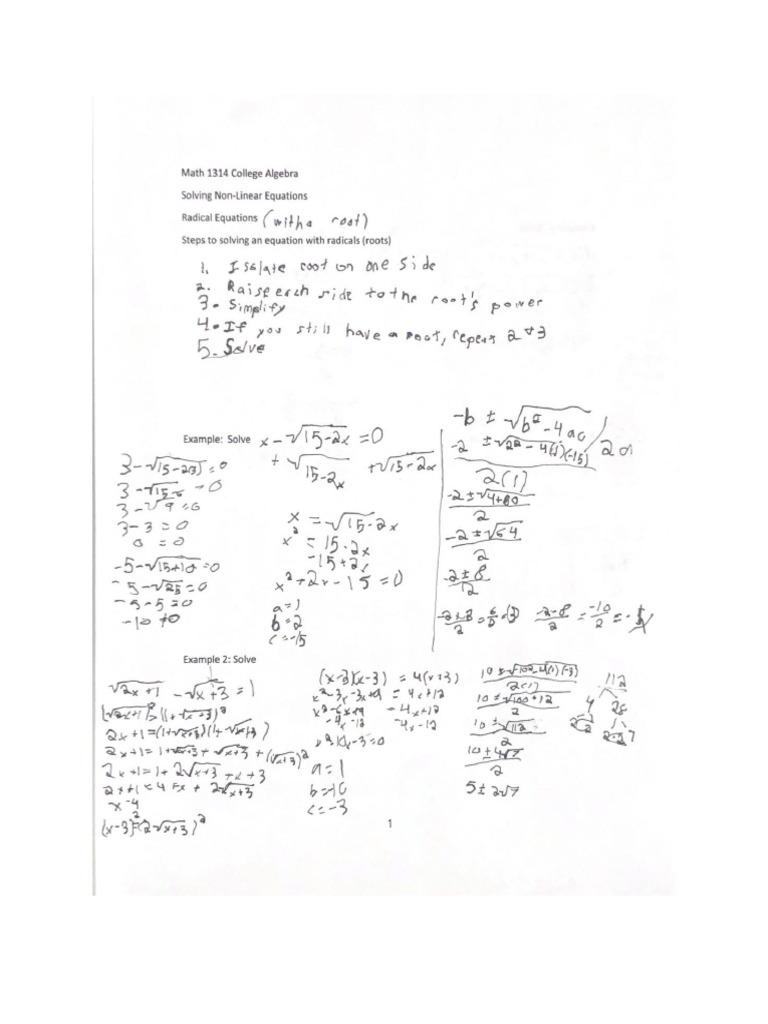 Math 1314 College Algebra
Solving Non-Linear Equations
Radical Equations (with a root)
Steps to solving an equation with radicals (roots)
1. Isolate root on one side
2. Raise each side to the root's power
3. Simplify
4. If you still have a root, repeat 2 & 3
5. Solve
Example: Solve x - √15-2x = 0
+ √15-2x + √15-2x
x = √15-2x
x² = 15-2x
-15+2x
x² + 2x - 15 = 0
a = 1
b = 2
c = -15
3 - √15-2(3) = 0
3 - √15-6 = 0
3 - √9 = 0
3 - 3 = 0
0 = 0
-5 - √15+10 = 0
-5 - √25 = 0
-5 - 5 = 0
-10 ≠ 0
-b ± √b² - 4ac / 2a
-2 ± √2² - 4(1)(-15)
2(1)
-2 ± √4+60
2
-2 ± √64
2
-2 ± 8
2
-2+8/2 = 6/2 = (3) -2-8/2 = -10/2 = -5
Example 2: Solve
√2x+1 - √x+3 = 1
(√2x+1)² = (1+√x+3)²
2x+1 = (1+√x+3)(1+√x+3)
2x+1 = 1+√x+3 + √x+3 + (√x+3)²
2x+1 = 1 + 2√x+3 + x + 3
2x+1 = 4 + x + 2√x+3
x -4
(x-3)² = (2√x+3)²
(x-3)(x-3) = 4(x+3)
x²-3x-3x+9 = 4x+12
x²-6x+9 = 4x+12
-4x-12 -4x-12
x²-10x-3=0
a = 1
b = -10
c = -3
10 ± √100-4(1)(-3)
2(1)
10 ± √100+12
2
10 ± √112
2
10 ± 4√7
2
5 ± 2√7
112
4 28
2·2 2·2·7
1